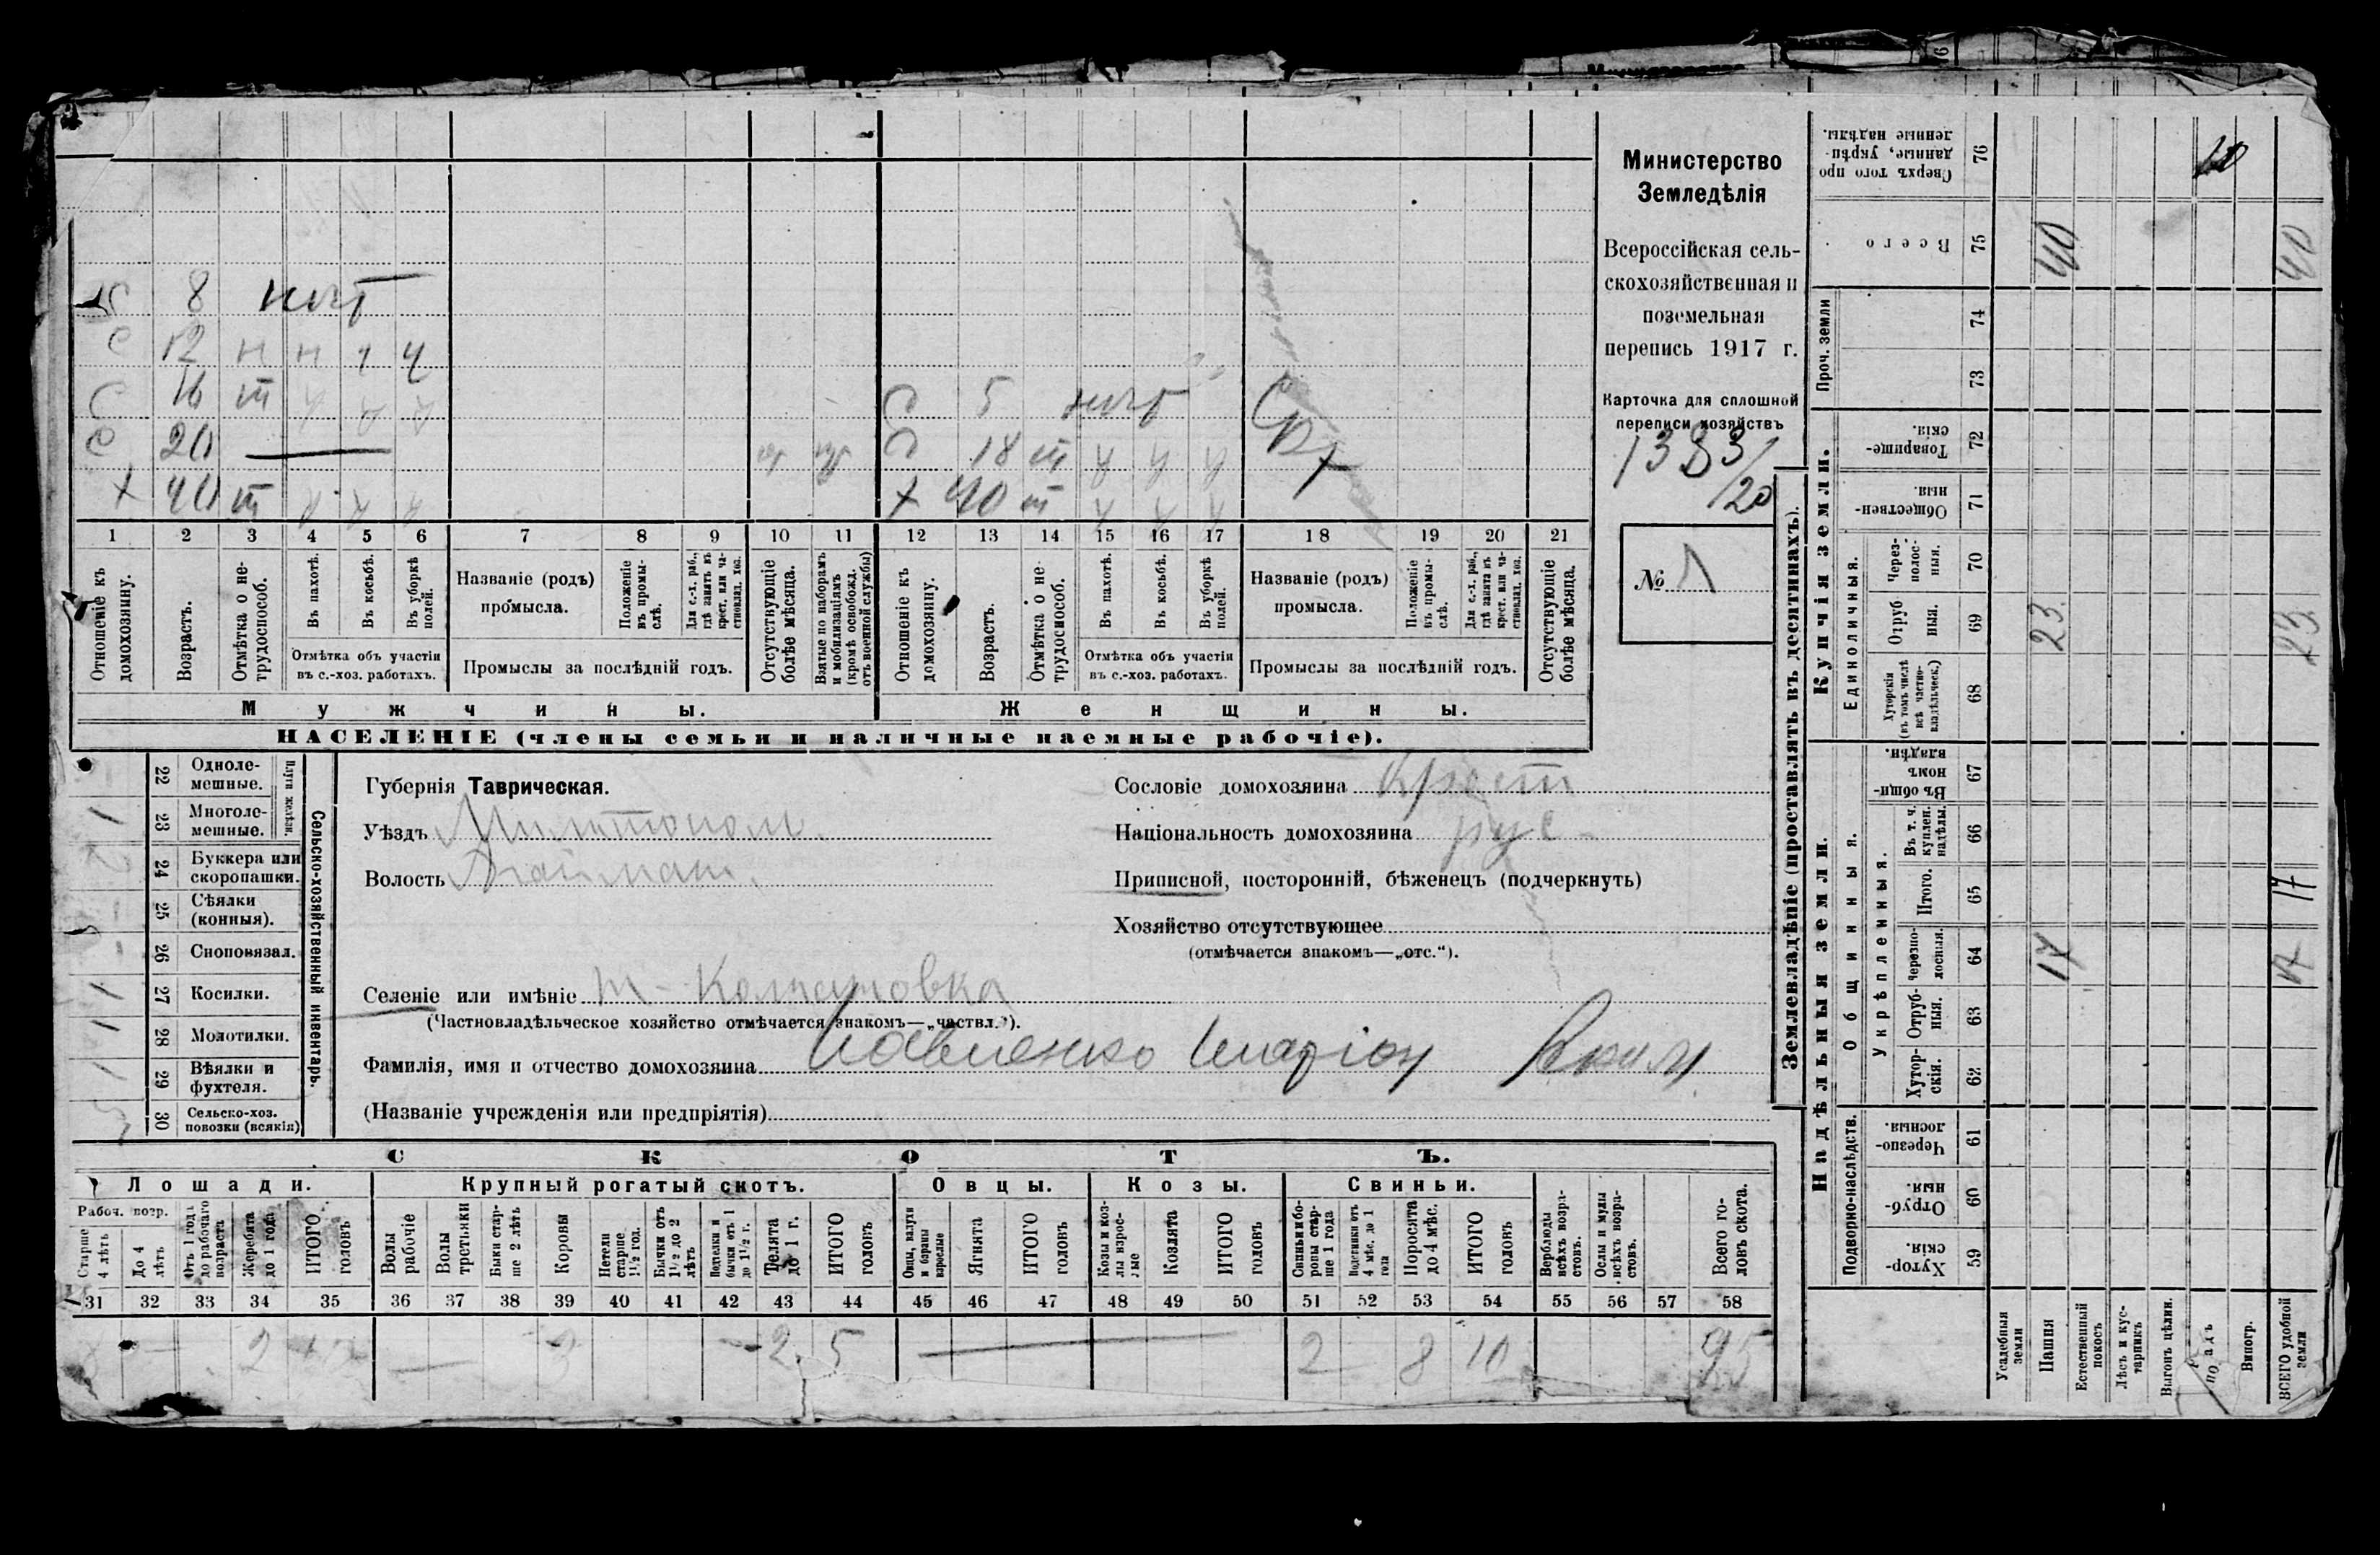 8 нѣт
С 12 н н ч ч
С 16 т ч ч ч
С 5 нѣт
С 20
С 18 т ч ч ч
х 40 т ч ч ч
1 2 3 4 5 6 7 8 9 10 11 12 13 14 15 16 17 18 19 20 21
Отношеніе къ домохозяину.
Возрастъ.
Отмѣтка о не-трудоспособ.
Въ пахотѣ.
Въ косьбѣ.
Въ уборкѣ полей.
Отмѣтка объ участіи въ с.-хоз. работахъ.
Названіе (родъ) промысла.
Положеніе въ промы-слѣ.
Для с.-х. раб., гдѣ занятъ въ крест. или ча-стновлад. хоз.
Промыслы за послѣдній годъ.
Отсутствующіе болѣе мѣсяца.
Взятые по наборамъ и мобилизаціямъ (кромѣ освобожд. отъ военной службы)
Отношеніе къ домохозяину.
Возрастъ.
Отмѣтка о не-трудоспособ.
Въ пахотѣ.
Въ косьбѣ.
Въ уборкѣ полей.
Отмѣтка объ участіи въ с.-хоз. работахъ.
Названіе (родъ) промысла.
Положеніе въ промы-слѣ.
Для с.-х. раб., гдѣ занята въ крест. или ча-стновлад. хоз.
Промыслы за послѣдній годъ.
Отсутствующіе болѣе мѣсяца.
Мужчины.
Женщины.
НАСЕЛЕНІЕ (члены семьи и наличные наемные рабочіе).
Министерство
Земледѣлія
Всероссійская сель-
скохозяйственная и
поземельная
перепись 1917 г.
Карточка для сплошной
переписи хозяйствъ
1383/
120
№ 1
22 Одноле-мешные.
23 Многоле-мешные. 1
Плуги желѣзн.
24 Буккера или скоропашки.
25 Сѣялки (конныя).
26 Сноповязал.
27 Косилки. 1
28 Молотилки. 1
29 Вѣялки и фухтеля. 1
30 Сельско-хоз. повозки (всякія)
Сельско-хозяйственный инвентарь.
Губернія Таврическая.
Уѣздъ Мелитопол.
Волость
Селеніе или имѣніе
(Частновладѣльческое хозяйство отмѣчается знакомъ—„частвл.“).
Фамилія, имя и отчество домохозяина Иларіон
(Названіе учрежденія или предпріятія)
Сословіе домохозяина Крест
Національность домохозяина рус
Приписной, посторонній, бѣженецъ (подчеркнуть)
Хозяйство отсутствующее
(отмѣчается знакомъ—„отс.“).
СКОТЪ.
Лошади. Крупный рогатый скотъ. Овцы. Козы. Свиньи.
Рабоч. возр.
Старше 4 лѣтъ
До 4 лѣтъ
Отъ 1 года до рабочаго возраста
Жеребята до 1 года
ИТОГО головъ
Волы рабочіе
Волы третьяки
Быки стар-ше 2 лѣтъ
Коровы
Нетели старше 1½ год.
Бычки отъ 1½ до 2 лѣтъ
Подтелки и бычки отъ 1 до 1½ г.
Телята до 1 г.
ИТОГО головъ
Овцы, валухи и бараны взрослые
Ягнята
ИТОГО головъ
Козы и коз-лы взрос-лые
Козлята
ИТОГО головъ
Свиньи и бо-ровы стар-ше 1 года
Подсвинки отъ 4 мѣс. до 1 года
Поросята до 4 мѣс.
ИТОГО головъ
Верблюды всѣхъ возра-стовъ.
Ослы и мулы всѣхъ возра-стовъ.
Всего го-ловъ скота.
31 32 33 34 35 36 37 38 39 40 41 42 43 44 45 46 47 48 49 50 51 52 53 54 55 56 57 58
2 3 2 5 2 8 10 25
Землевладѣніе (проставлять въ десятинахъ).
Надѣльныя земли.
Купчія земли.
Проч. земли
Подворно-наслѣдств.
Общинныя.
Укрѣпленныя.
Единоличныя.
59 Хутор-скія.
60 Отруб-ныя.
61 Черезпо-лосныя.
62 Хутор-скія.
63 Отруб-ныя.
64 Черезпо-лосныя. 17 17
65 Итого. 17
66 Въ т. ч. куплен. надѣлы
67 Въ общи-номъ владѣн.
68 Хуторскія (въ томъ числѣ всѣ частно-владѣльческ.)
69 Отруб ныя. 23 23
70 Через-полос-ныя.
71 Обществен-ныя.
72 Товарище-скія.
73
74
75 Всего 40 40
76 Сверхъ того про данные, укрѣп-ленные надѣлы.
Усадебныя земли
Пашня
Естественный покосъ
Лѣсъ и кус-тарникъ
Выгонъ цѣлин.
Виногр.
ВСЕГО удобной земли